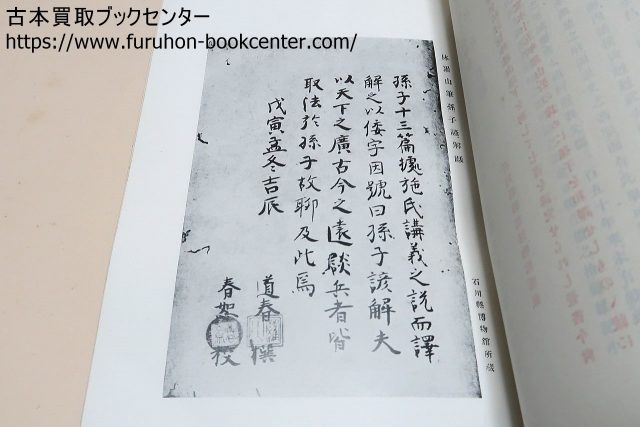 古本買取ブックセンター
https://www.furuhon-bookcenter.com/
林羅山筆孫子諺解跋
孫子十三篇據施氏講義之説而譯
解之以倭字因號曰孫子諺解夫
以天下之廣古今之遠談兵者皆
取法於孫子故聊及此焉
戊寅孟冬吉辰
道春 撰
春 校
石川縣博物館所藏